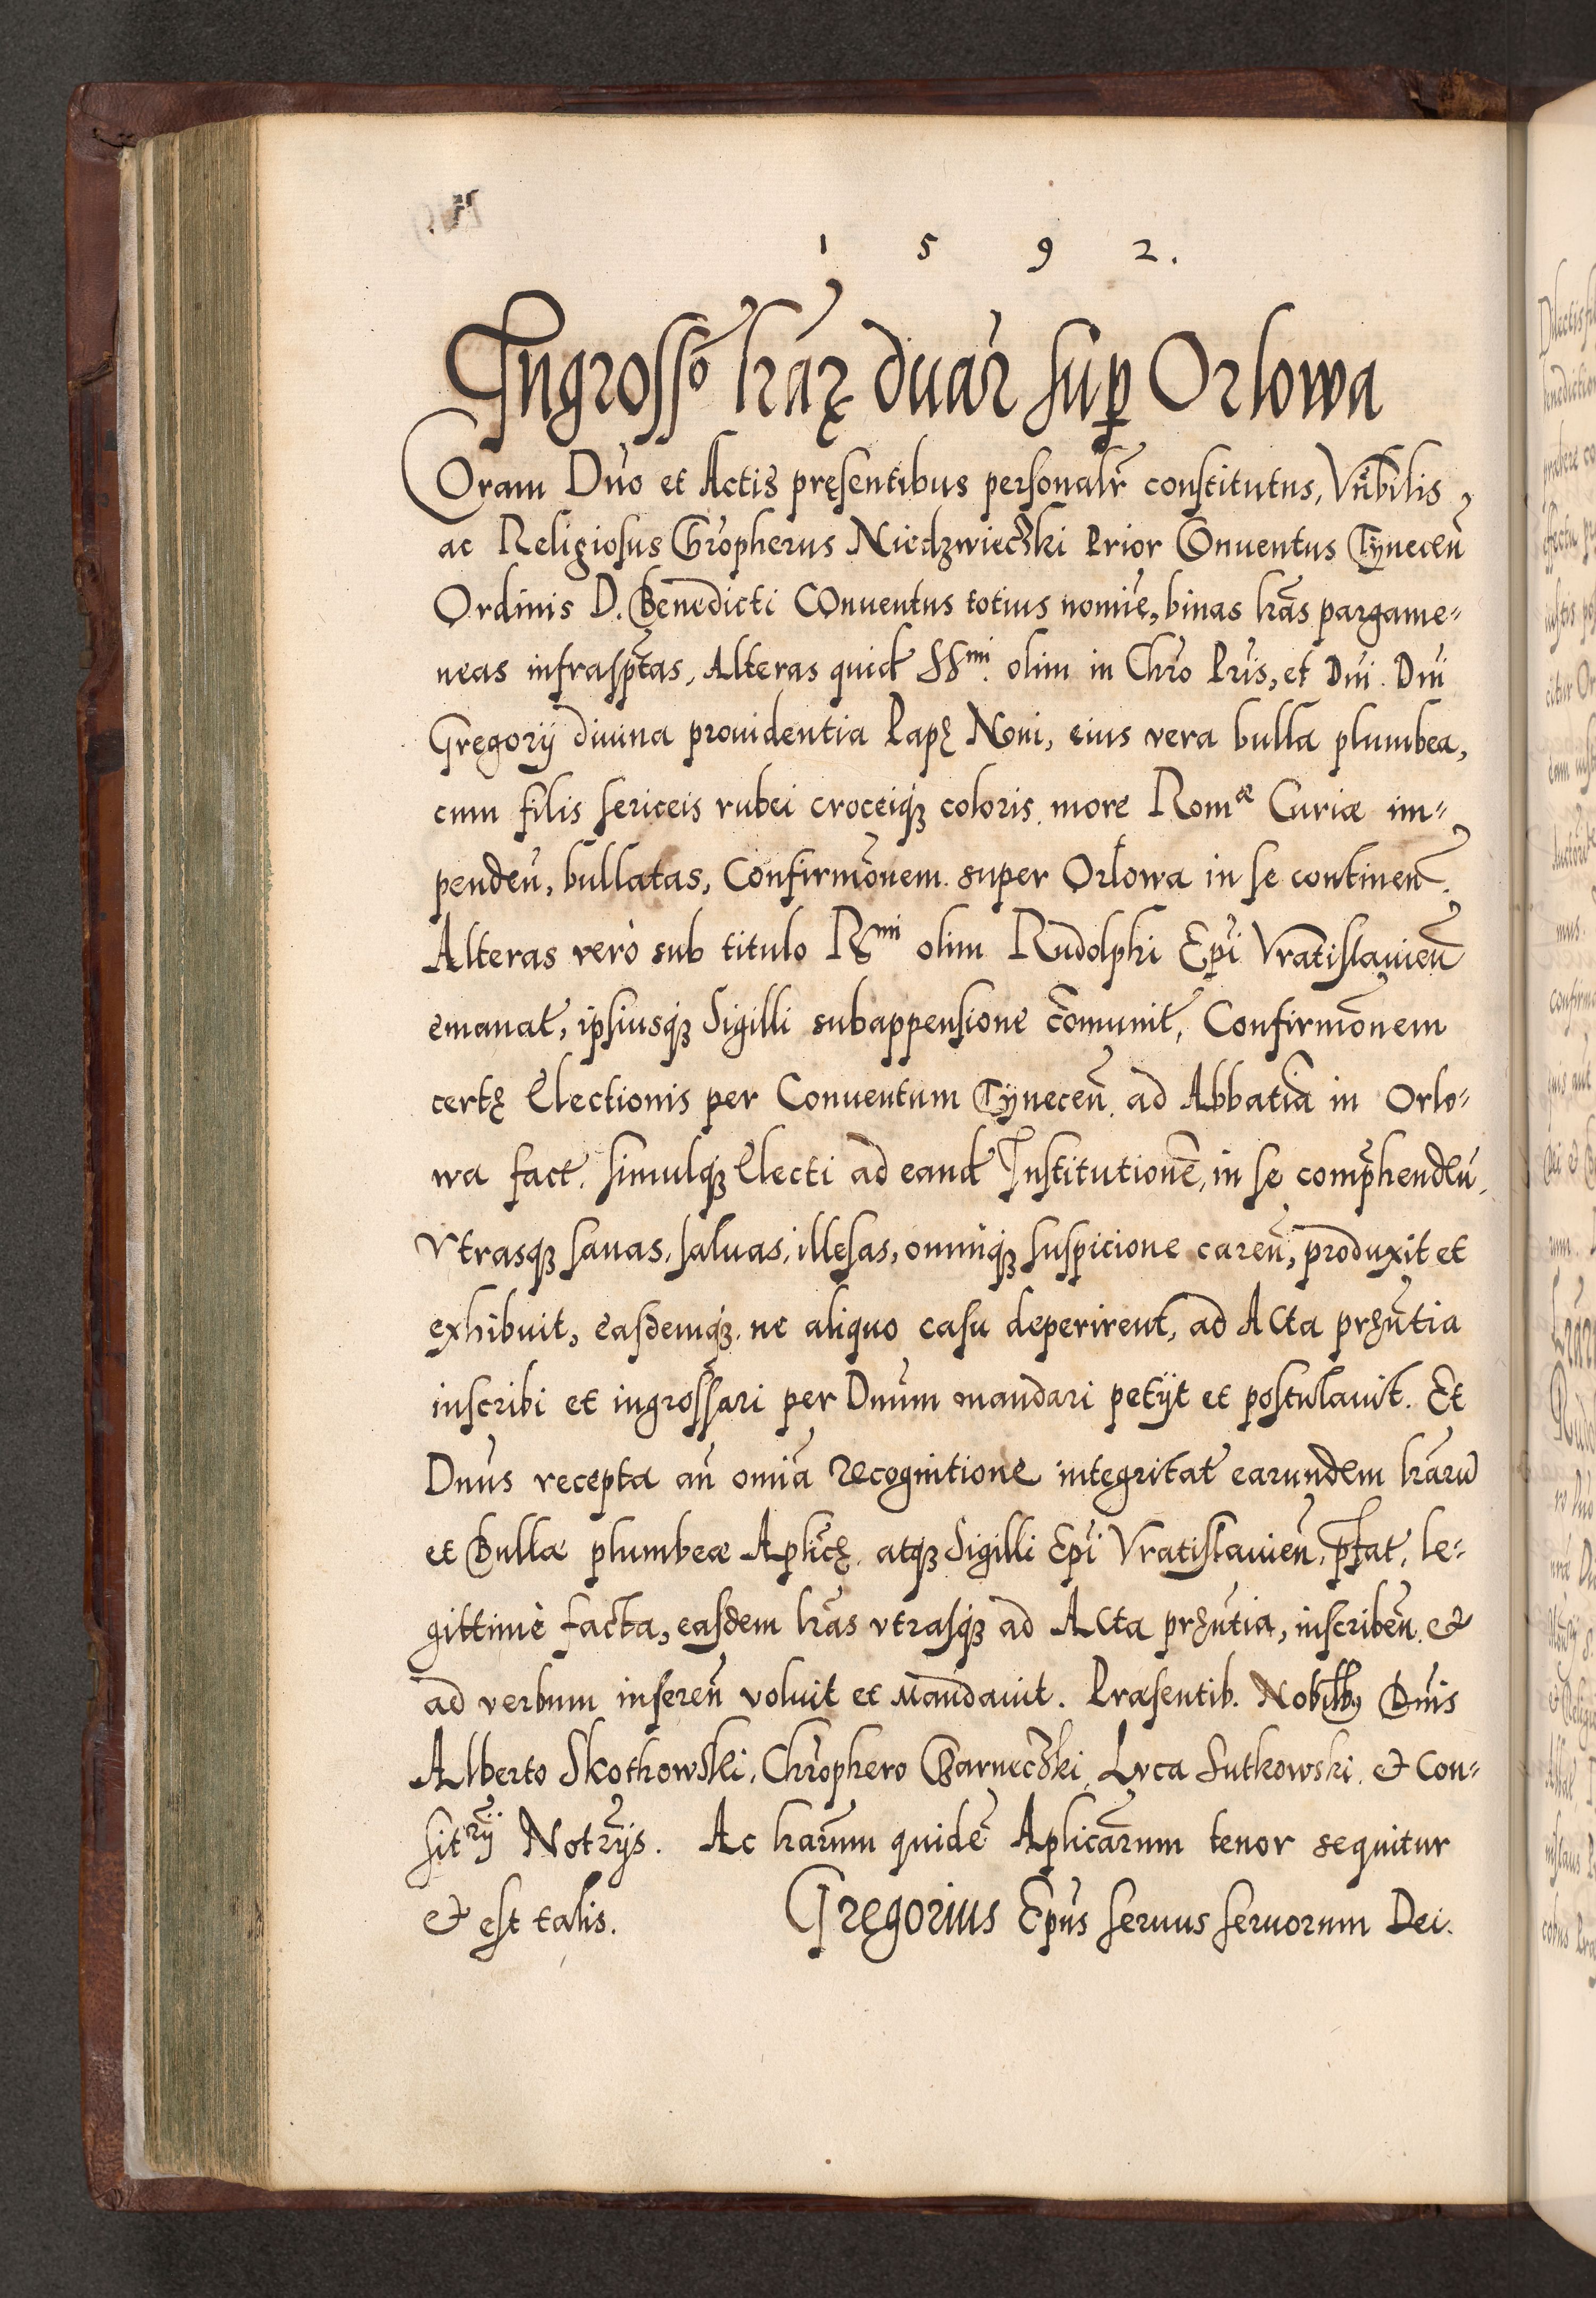 1 5 9 2.
Ingrosso l̄raꝝ duar̄ sup̱ Orlowa
Coram Dn̄o et Actis pręsentibus personalr̄ constitutus, Vn̄bilis
ac Religiosus Chr̄opherus Niedzwieczki Prior Conuentus Tynecen̄
Ordinis D. Benedicti COnuentus totius nomīe, binas l̄ras pargame⸗
neas infrasp̄tas, Alteras quid' SSmi. olim in Chr̄o Pr̄is, et Dn̄i. Dn̄i
Gregorij diuina prouidentia Papę Noni, eius vera bulla plumbea,
cum filis sericeis rubei croceiqꝫ coloris more Romæ Curiæ im⸗
penden̄, bullatas, Confirmōnem super Orlowa in se continen̄.
Alteras verò sub titulo Rmi olim Rudolphi Ep̄i Vratislauien̄
emanat', ipsiusqꝫ Sigilli subappensione cōmunit', Confirmōnem
certę Electionis per Conuentum Tynecen̄ ad Abbatiā in Orlo⸗
wa fact'. simulqꝫ Electi ad eand' Institutionē, in se comp̄henden̄.
Vtrasqꝫ sanas, saluas, illesas, omniqꝫ suspicione caren̄, produxit et
exhibuit, easdemqꝫ ne aliquo casu deperirent, ad ACta prꝫn̄tia
inscribi et ingrossari per Dn̄um mandari petijt et postulauit. Et
Dn̄us recepta an̄ omīa recognitione integritat' earundem l̄rarū
et Bullæ plumbeæ Aplicę atqꝫ Sigilli Ep̄i Vratislauien̄, p̄fat', le⸗
gittimè facta, easdem l̄ras vtrasqꝫ ad ACta prꝫn̄tia, inscriben̄ &
ad verbum inseren̄ voluit et Mandauit. Præsentib. Nobilibꝫ Dn̄is
Alberto Skothowski, Chr̄ophero Czarneczki, Lvca Sutkowski & Con⸗
sitr̄ij Notr̄ijs. Ac l̄rarum quidē Aplicarum tenor sequitur
& est talis. Gregorius Ep̄us seruus seruorum Dei.